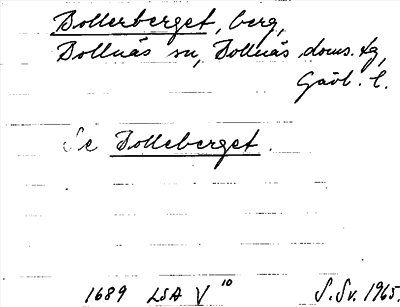 Bollerberget, berg,
Bollnäs sn, Bollnäs doms. tg,
Gävl. l.
Se Bolleberget.
1689 LSA V 10 S. Sv. 1965.